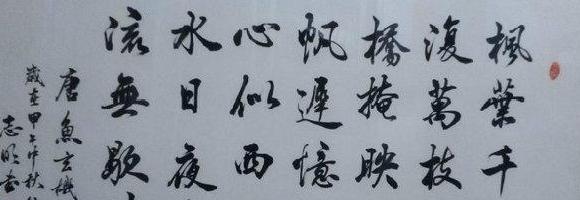 楓葉千
復萬枝
橋掩映
帆遲憶
心似西
水日夜
流無歇
唐魚玄機
歲在甲午仲秋
志明書